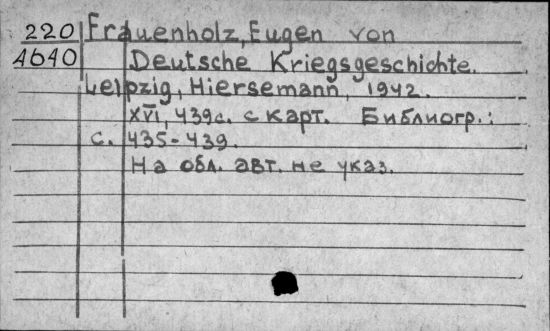 220 Frauenholz, Eugen von
A640 Deutsche Kriegsgeschichte.
Leipzig, Hiersemann, 1942.
XVI, 439с. с карт. Библиогр.:
с. 435-439.
На обл. авт. не указ.